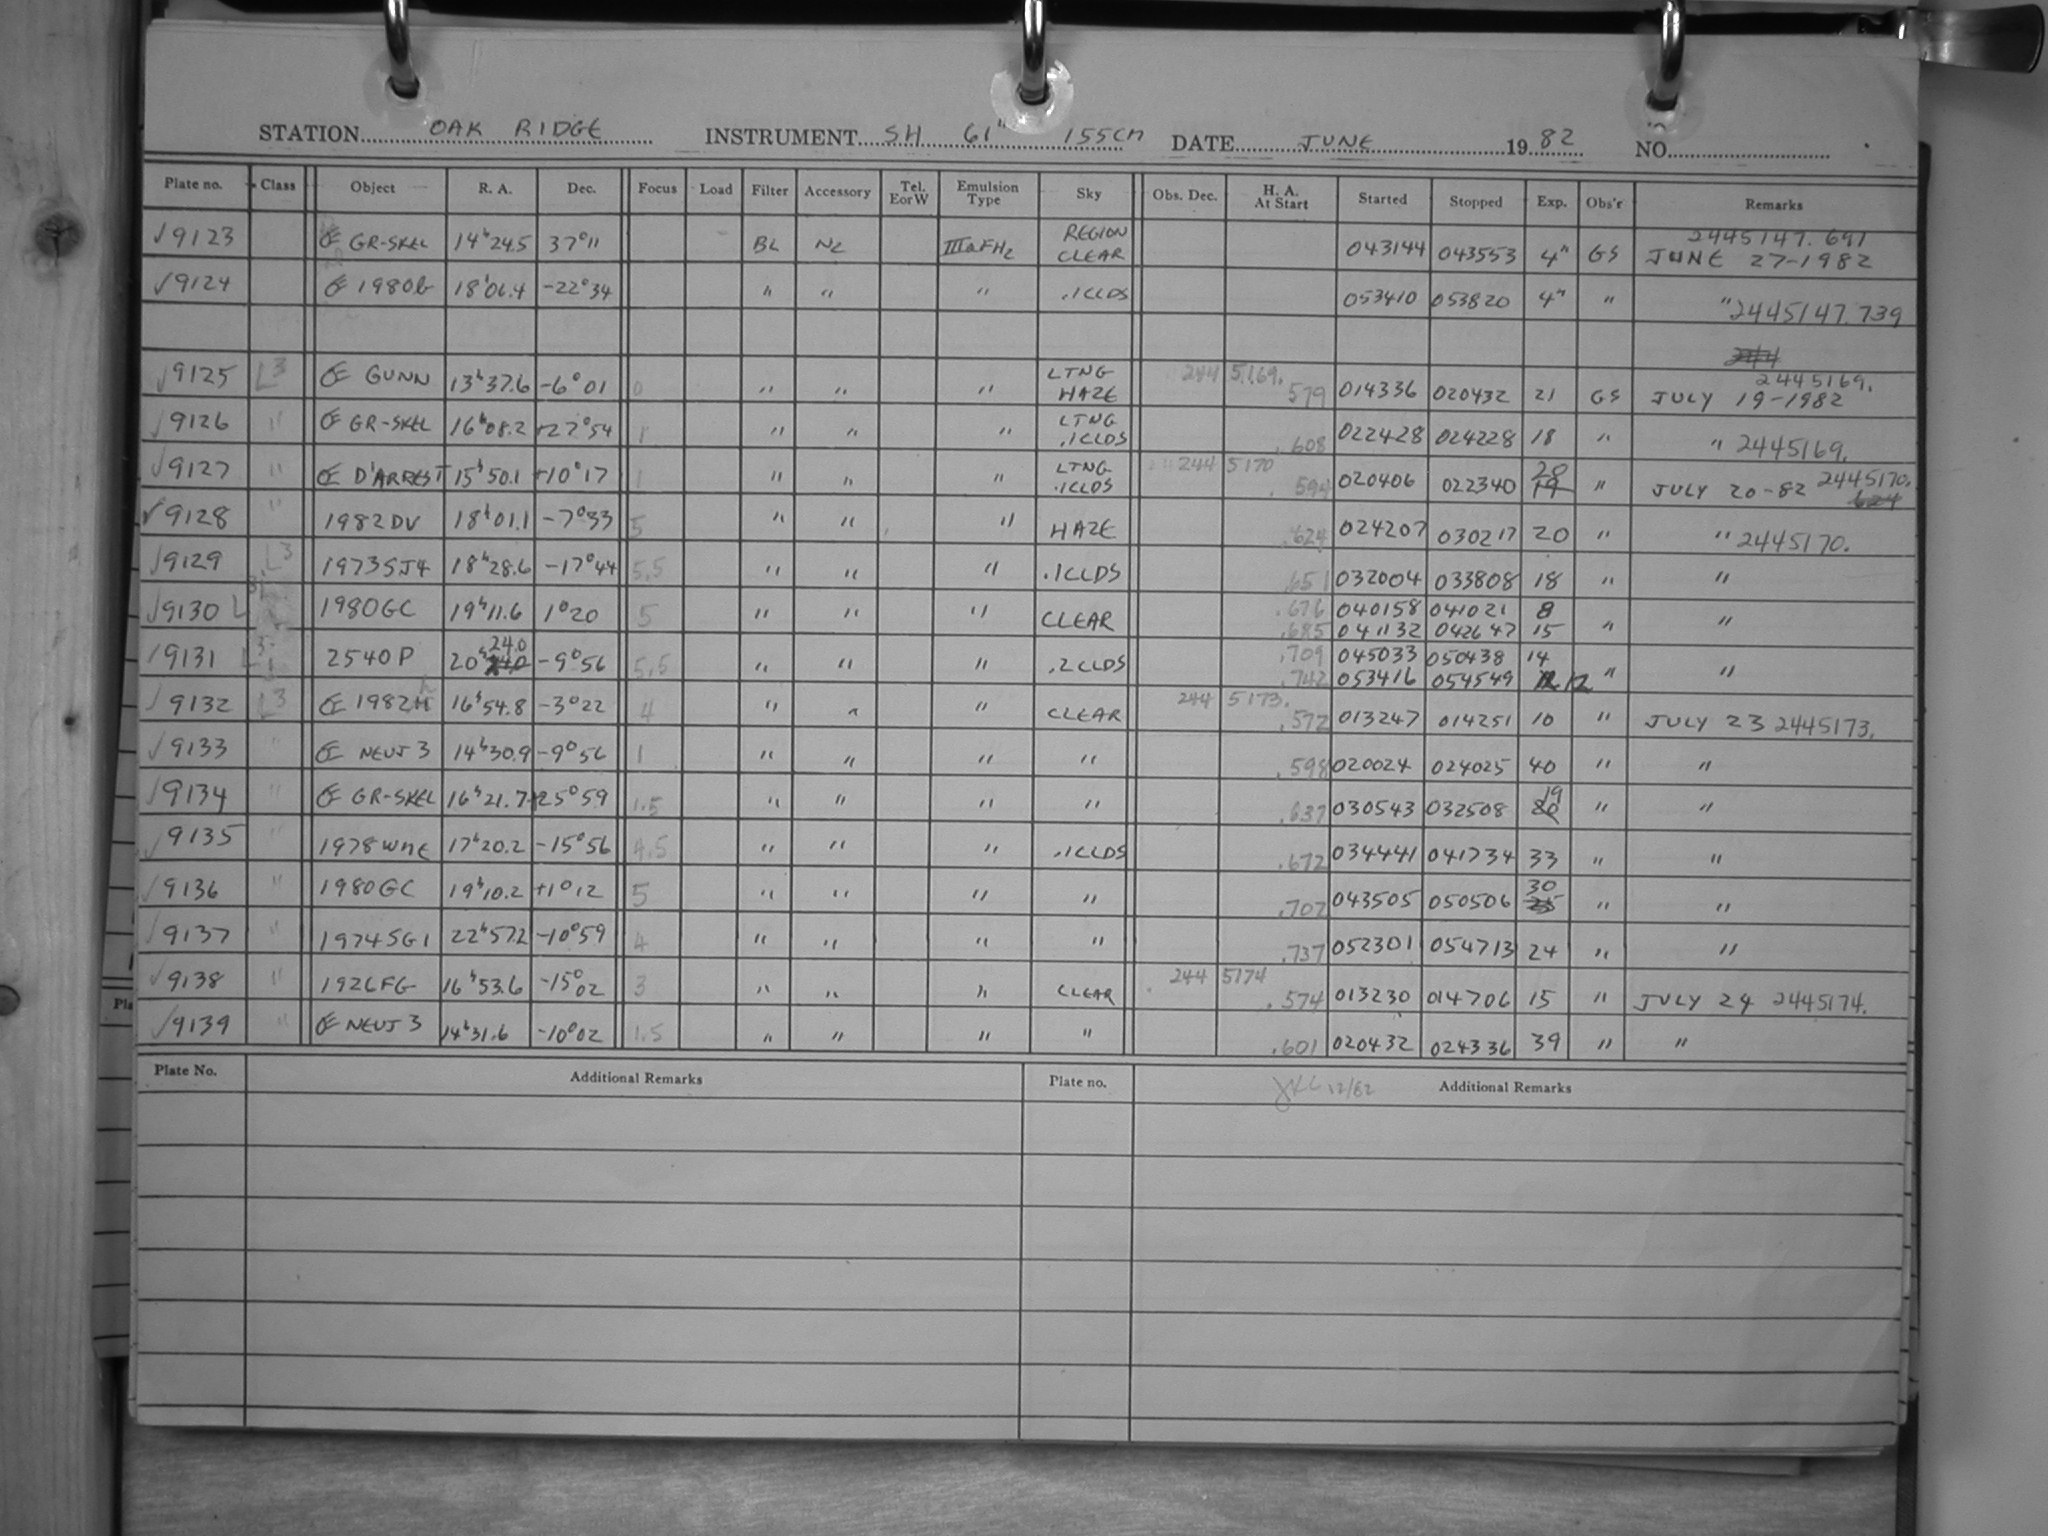 STATION OAK RIDGE INSTRUMENT SH 61" 155CM DATE JUNE 1982 NO.
Plate no. Class Object R. A. Dec. Focus Load Filter Accessory Tel. E or W Emulsion Type Sky Obs. Dec. H. A. At Start Started Stopped Exp. Obs'r Remarks
√9123 GR-SKEL 14h24.5 37°11 BL NL IIIaFH2 REGION CLEAR 043144 043553 4m GS 2445147.691 JUNE 27-1982
√9124 1980G 18h06.4 -22°34 " " " .1CLDS 053410 053820 4m " " 2445147.739
244
√9125 L3 GUNN 13h37.6 -6°01 0 " " " LTNG HAZE 244 5169. .579 014336 020432 21 GS 2445169. JULY 19-1982
√9126 " GR-SKEL 16h08.2 +27°54 1 " " " LTNG .1CLDS .608 022428 024228 18 " " 2445169.
√9127 " D'ARREST 15h50.1 +10°17 1 " " " LTNG .1CLDS 244 5170 .594 020406 022340 20 19 " JULY 20-82 2445170. 624
√9128 " 1982DV 18h01.1 -7°33 5 " " " HAZE .624 024207 030217 20 " " 2445170.
√9129 L3 1973SJ4 18h28.6 -17°44 5.5 " " " .1CLDS .651 032004 033808 18 " "
√9130 L 1980GC 19h11.6 1°20 5 " " " CLEAR .676 040158 041021 8
.685 041132 042647 15 " "
√9131 2540P 20h24.0 -9°56 5.5 " " " .2CLDS .709 045033 050438 14
.742 053416 054549 12 " "
√9132 L3 1982H 16h54.8 -3°22 4 " " " CLEAR 244 5173. .572 013247 014251 10 " JULY 23 2445173.
√9133 " NEUJ 3 14h30.9 -9°56 1 " " " " .598 020024 024025 40 " "
√9134 " GR-SKEL 16h21.7 +25°59 1.5 " " " " .637 030543 032508 19 20 " "
√9135 " 1978WME 17h20.2 -15°56 4.5 " " " .1CLDS .672 034441 041734 33 " "
√9136 " 1980GC 19h10.2 +1°12 5 " " " " .707 043505 050506 30 25 " "
√9137 " 1974SG1 22h57.2 -10°59 4 " " " " .737 052301 054713 24 " "
√9138 " 1926FG 16h53.6 -15°02 3 " " " CLEAR 244 5174 .574 013230 014706 15 " JULY 24 2445174.
√9139 " NEUJ 3 14h31.6 -10°02 1.5 " " " " .601 020432 024336 39 " "
Plate No. Additional Remarks Plate no. 12/82 Additional Remarks